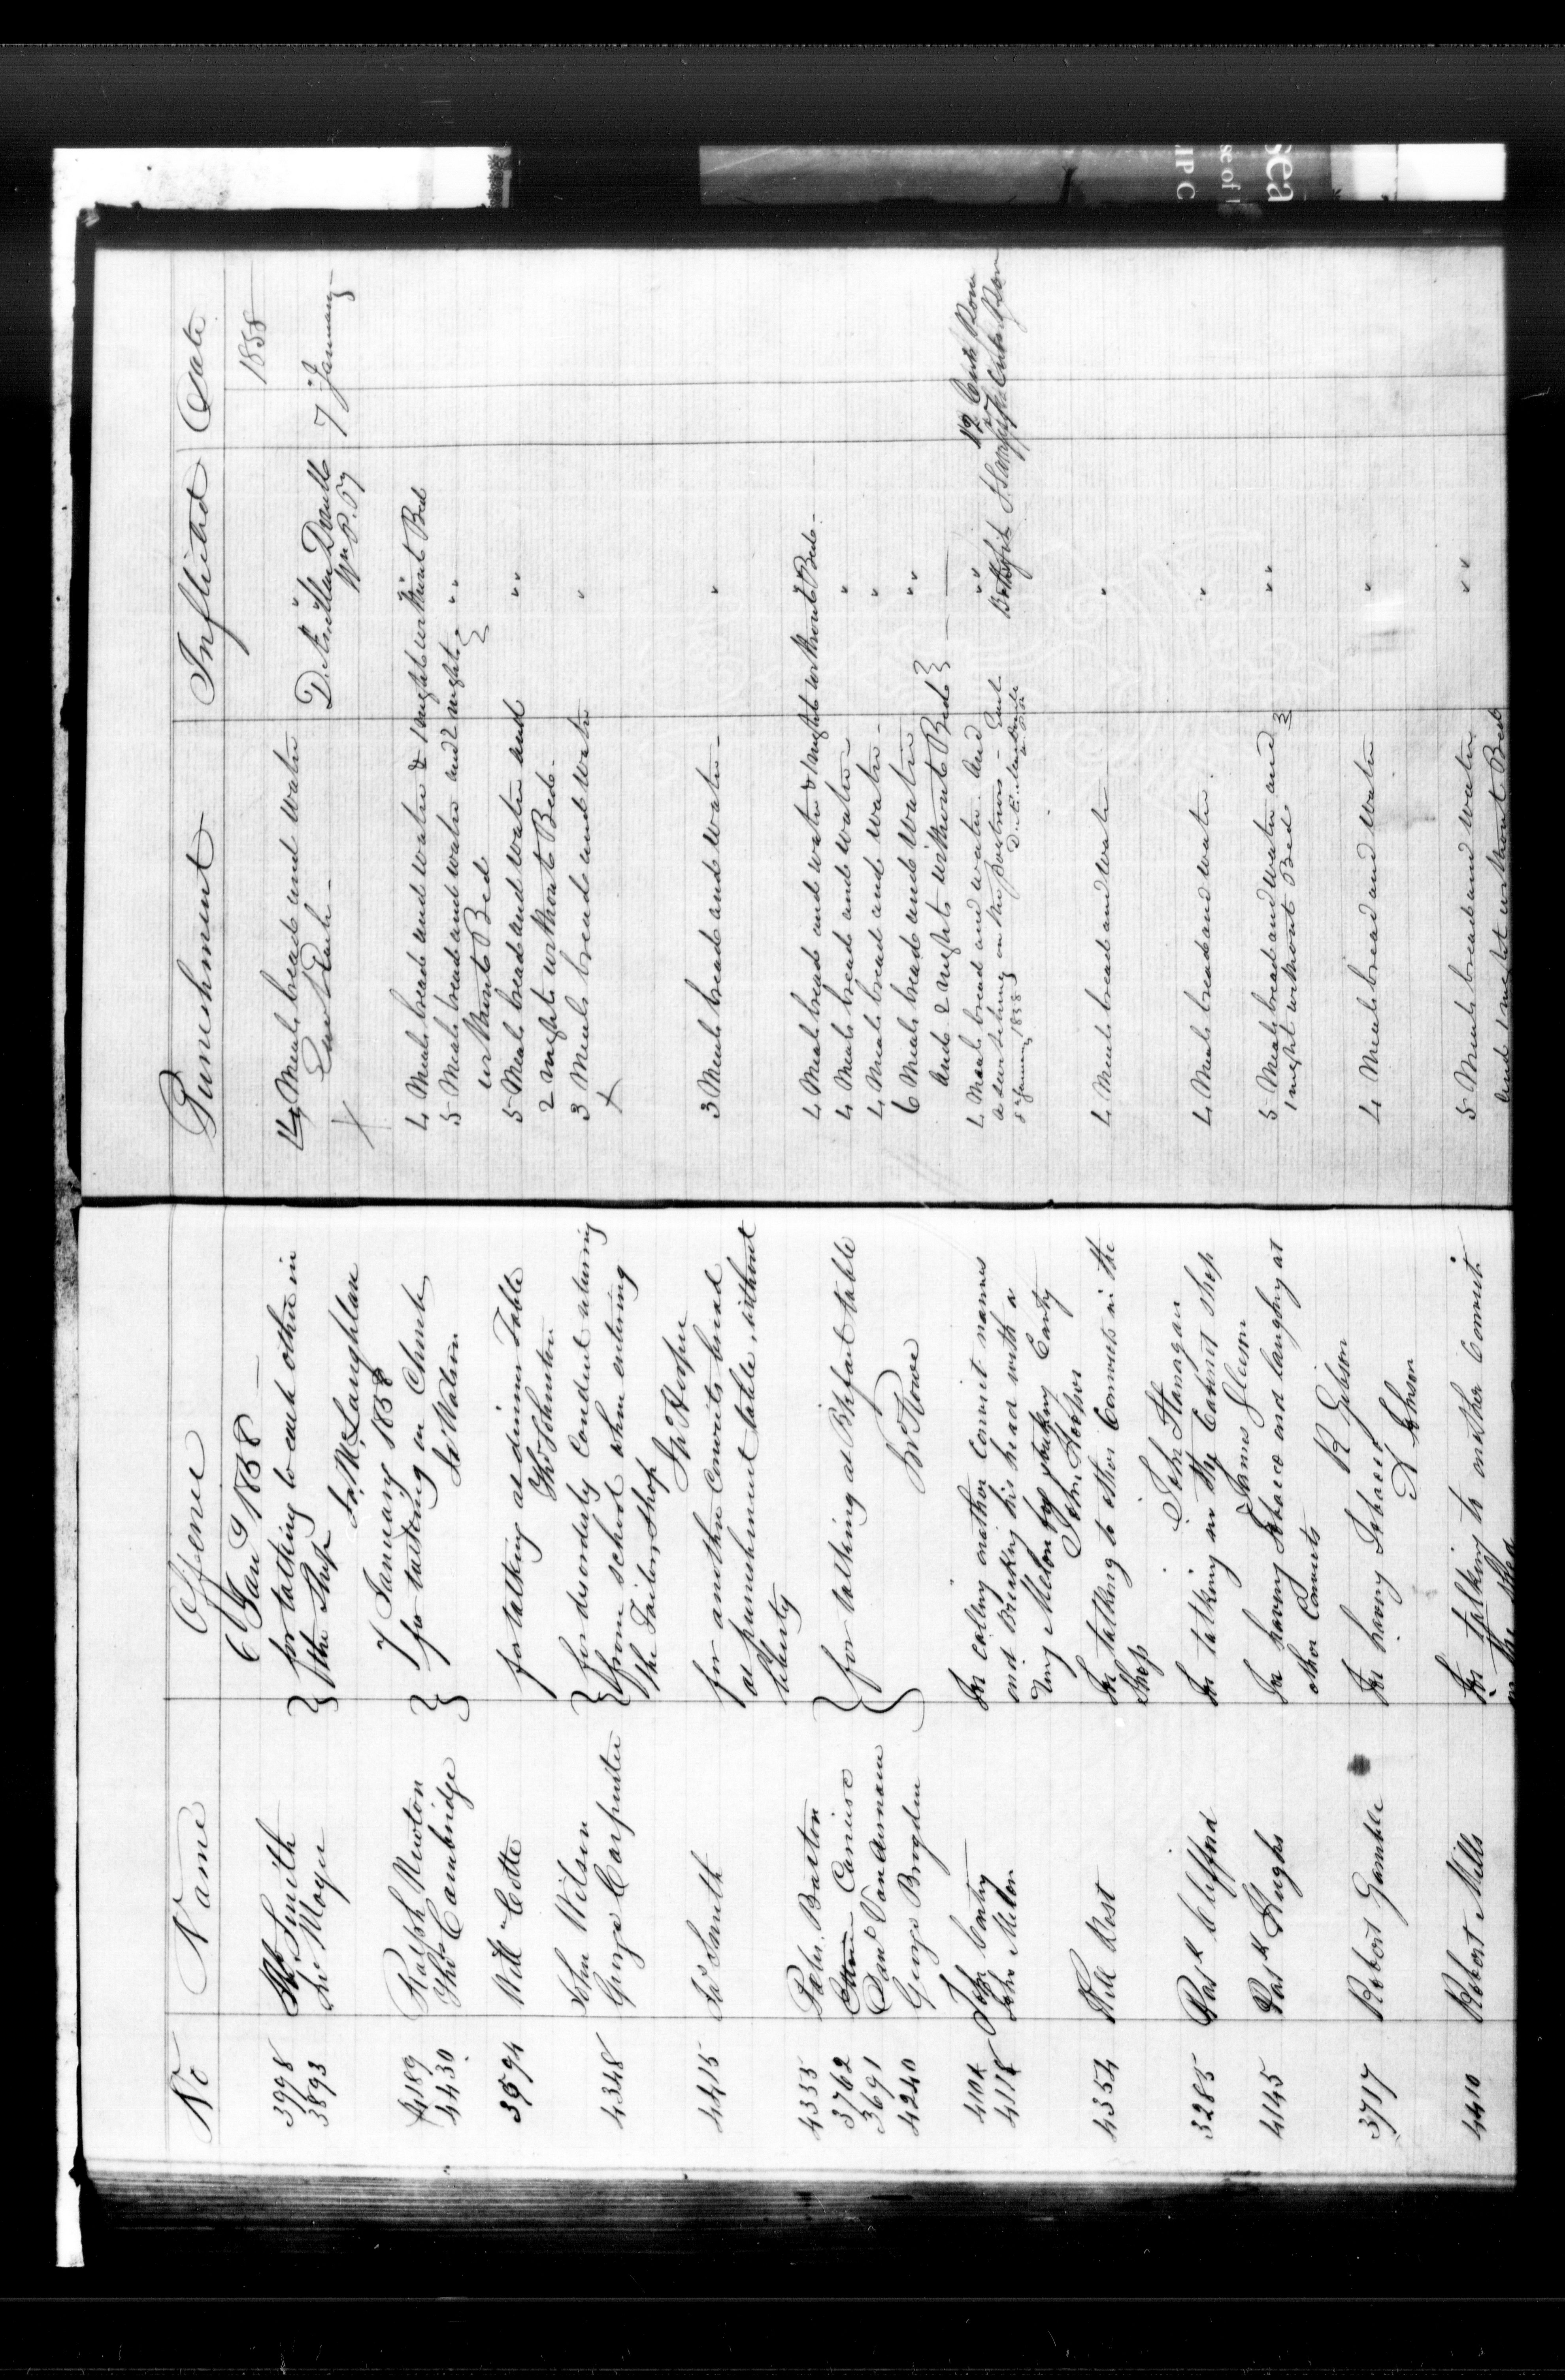 No Name Offence
6 Jany 1858
3998 Smith } for talking to each other in
3893 Moyer } the Shop
Jas McLaughlan
7 January 1858
4189 Ralph Newton } for talking in Church
4430 Thos Cambridge } Jas Watson
3594 Will Cotte for talking at dinner Table
Thos Johnston
John Wilson } for disorderly Conduct returning
4348 George Carpenter } from school when entering
the Tailors Shop
Jno Hooper
4415 Jas Smith for another Convicts bread
at punishment table, without
liberty
4355 Peter Barton
3762 Carriere } for talking at Bkfast table
3691 Danl VanAurnam
4240 George Brogden } Wm Rowe
4104 John Canty for calling another Convict names
4118 John Melon and Breaking his head with a
Urny Melon for striking Canty
John Hooper
4354 Will West for talking to other Convicts in the
Shop
John Flanagan
3285 Patk Clifford for talking in the Cabinet shop
James Gleeson
4145 Patk Hughs for having Tobacco and laughing at
other Convicts
R Gibson
3717 Robert Gamble for having Tobacco
4410 Robert Mills for talking to another Convict
in the
Punishment Inflicted Date
1858
4 Meals bread and Water
Each
7 January
4 Meals bread and Water & 1 night without Bed
5 Meals bread and Water and 2 nights
without Bed
5 Meals bread and Water and
2 nights without Beds
3 Meals bread and Water
3 Meals bread and Water
4 Meals bread and Water & 1 night without Beds
4 Meals bread and Water
4 Meals bread and Water
6 Meals bread and Water
and 2 nights without Beds
4 Meals bread and Water and
8 January 1858
4 Meals bread and Water
4 Meals bread and Water
5 Meals bread and Water and
1 night without Bed
4 Meals bread and Water
5 Meals bread and Water
and 1 night without Bed
sea
se of
JP C